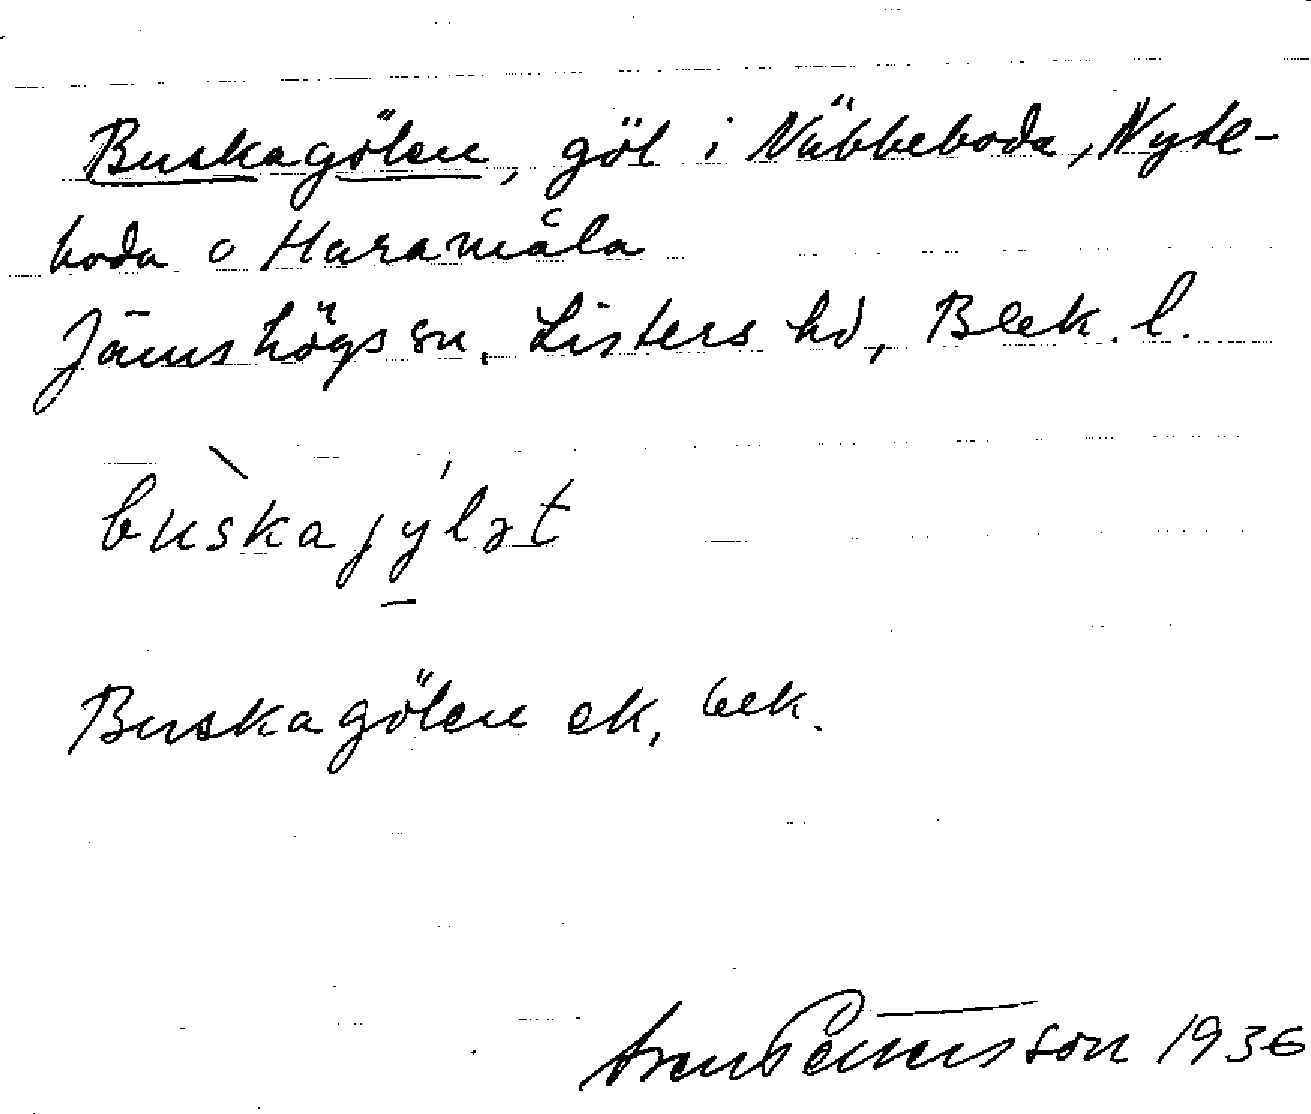 Buskagölen, göl i Näbbeboda, Nyte-
boda o Haramåla
Jämshögs sn, Listers hd, Blek. l.
bùskajýlət
Buskagölen ek, bek.
Sven Pettersson 1936